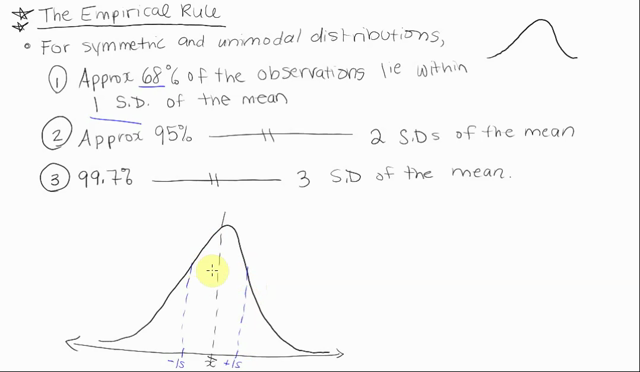 The Empirical Rule
For symmetric and unimodal distributions,
① Approx 68% of the observations lie within
1 S.D. of the mean
② Approx 95% —||— 2 S.Ds of the mean
③ 99.7% —||— 3 S.D of the mean.
-1s x̄ +1s